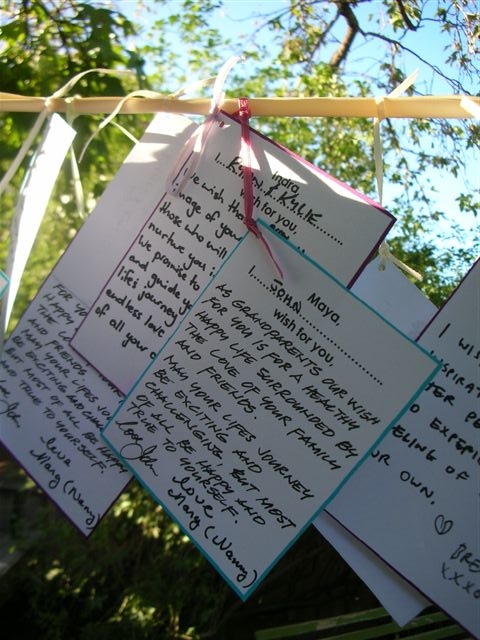 Indra,
I...ROBIN & KYLIE.......
wish for you.
we wish tha
image of you
those who will
nurture you
We promise to
and guide y
life's journey
endless love
of all your d
Maya,
I....JOHN............
wish for you..........
AS GRANDPARENTS OUR WISH
FOR YOU IS FOR A HEALTHY
HAPPY LIFE SURROUNDED BY
THE LOVE OF YOUR FAMILY
AND FRIENDS.
MAY YOUR LIFES JOURNEY
BE EXCITING AND
CHALLENGING, BUT MOST
OF ALL BE HAPPY AND
TRUE TO YOURSELF.
love John
love
Mary (Nanny)
FOR YO
HAPPY
THE
AND FRIENDS
MAY YOUR LIFES JOU
BE EXCITING AND CHA
BUT MOST OF ALL BE HAPPY
AND TRUE TO YOURSELF.
love
Mary (Nanny)
I WIS
SPIRAT
ER PE
O EXPERI
EELING OF
UR OWN.
♡
BRE
xxxo